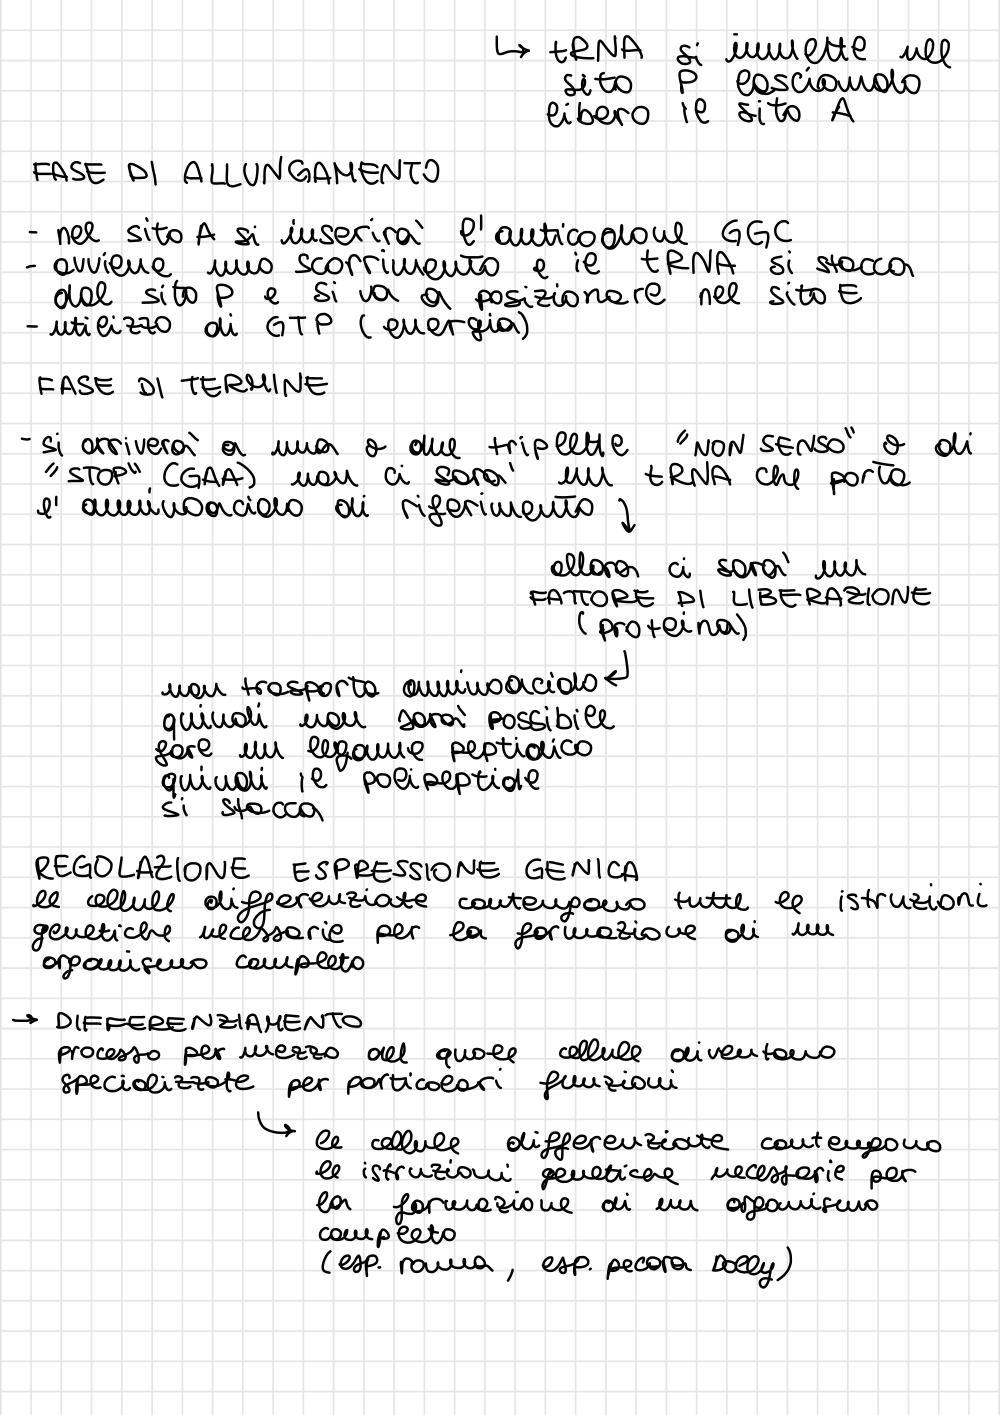 ↳ tRNA si immette nel
sito P lasciando
libero il sito A
FASE DI ALLUNGAMENTO
- nel sito A si inserirà l'anticodone GGC
- avviene uno scorrimento e il tRNA si stacca
dal sito P e si va a posizionare nel sito E
- utilizzo di GTP (energia)
FASE DI TERMINE
- si arriverà a una o due triplette "NON SENSO" o di
"STOP" (GAA) non ci sarà un tRNA che porta
l'amminoacido di riferimento ↓
allora ci sarà un
FATTORE DI LIBERAZIONE
(proteina)
non trasporta amminoacido ↵
quindi non sarà possibile
fare un legame peptidico
quindi il polipeptide
si stacca
REGOLAZIONE ESPRESSIONE GENICA
le cellule differenziate contengono tutte le istruzioni
genetiche necessarie per la formazione di un
organismo completo
→ DIFFERENZIAMENTO
processo per mezzo del quale cellule diventano
specializzate per particolari funzioni
↳ le cellule differenziate contengono
le istruzioni genetiche necessarie per
la formazione di un organismo
completo
(esp. rana, esp. pecora Dolly)